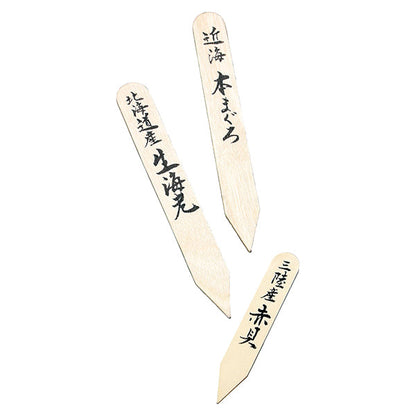 近海 本まぐろ
北海道産 生海老
三陸産 赤貝